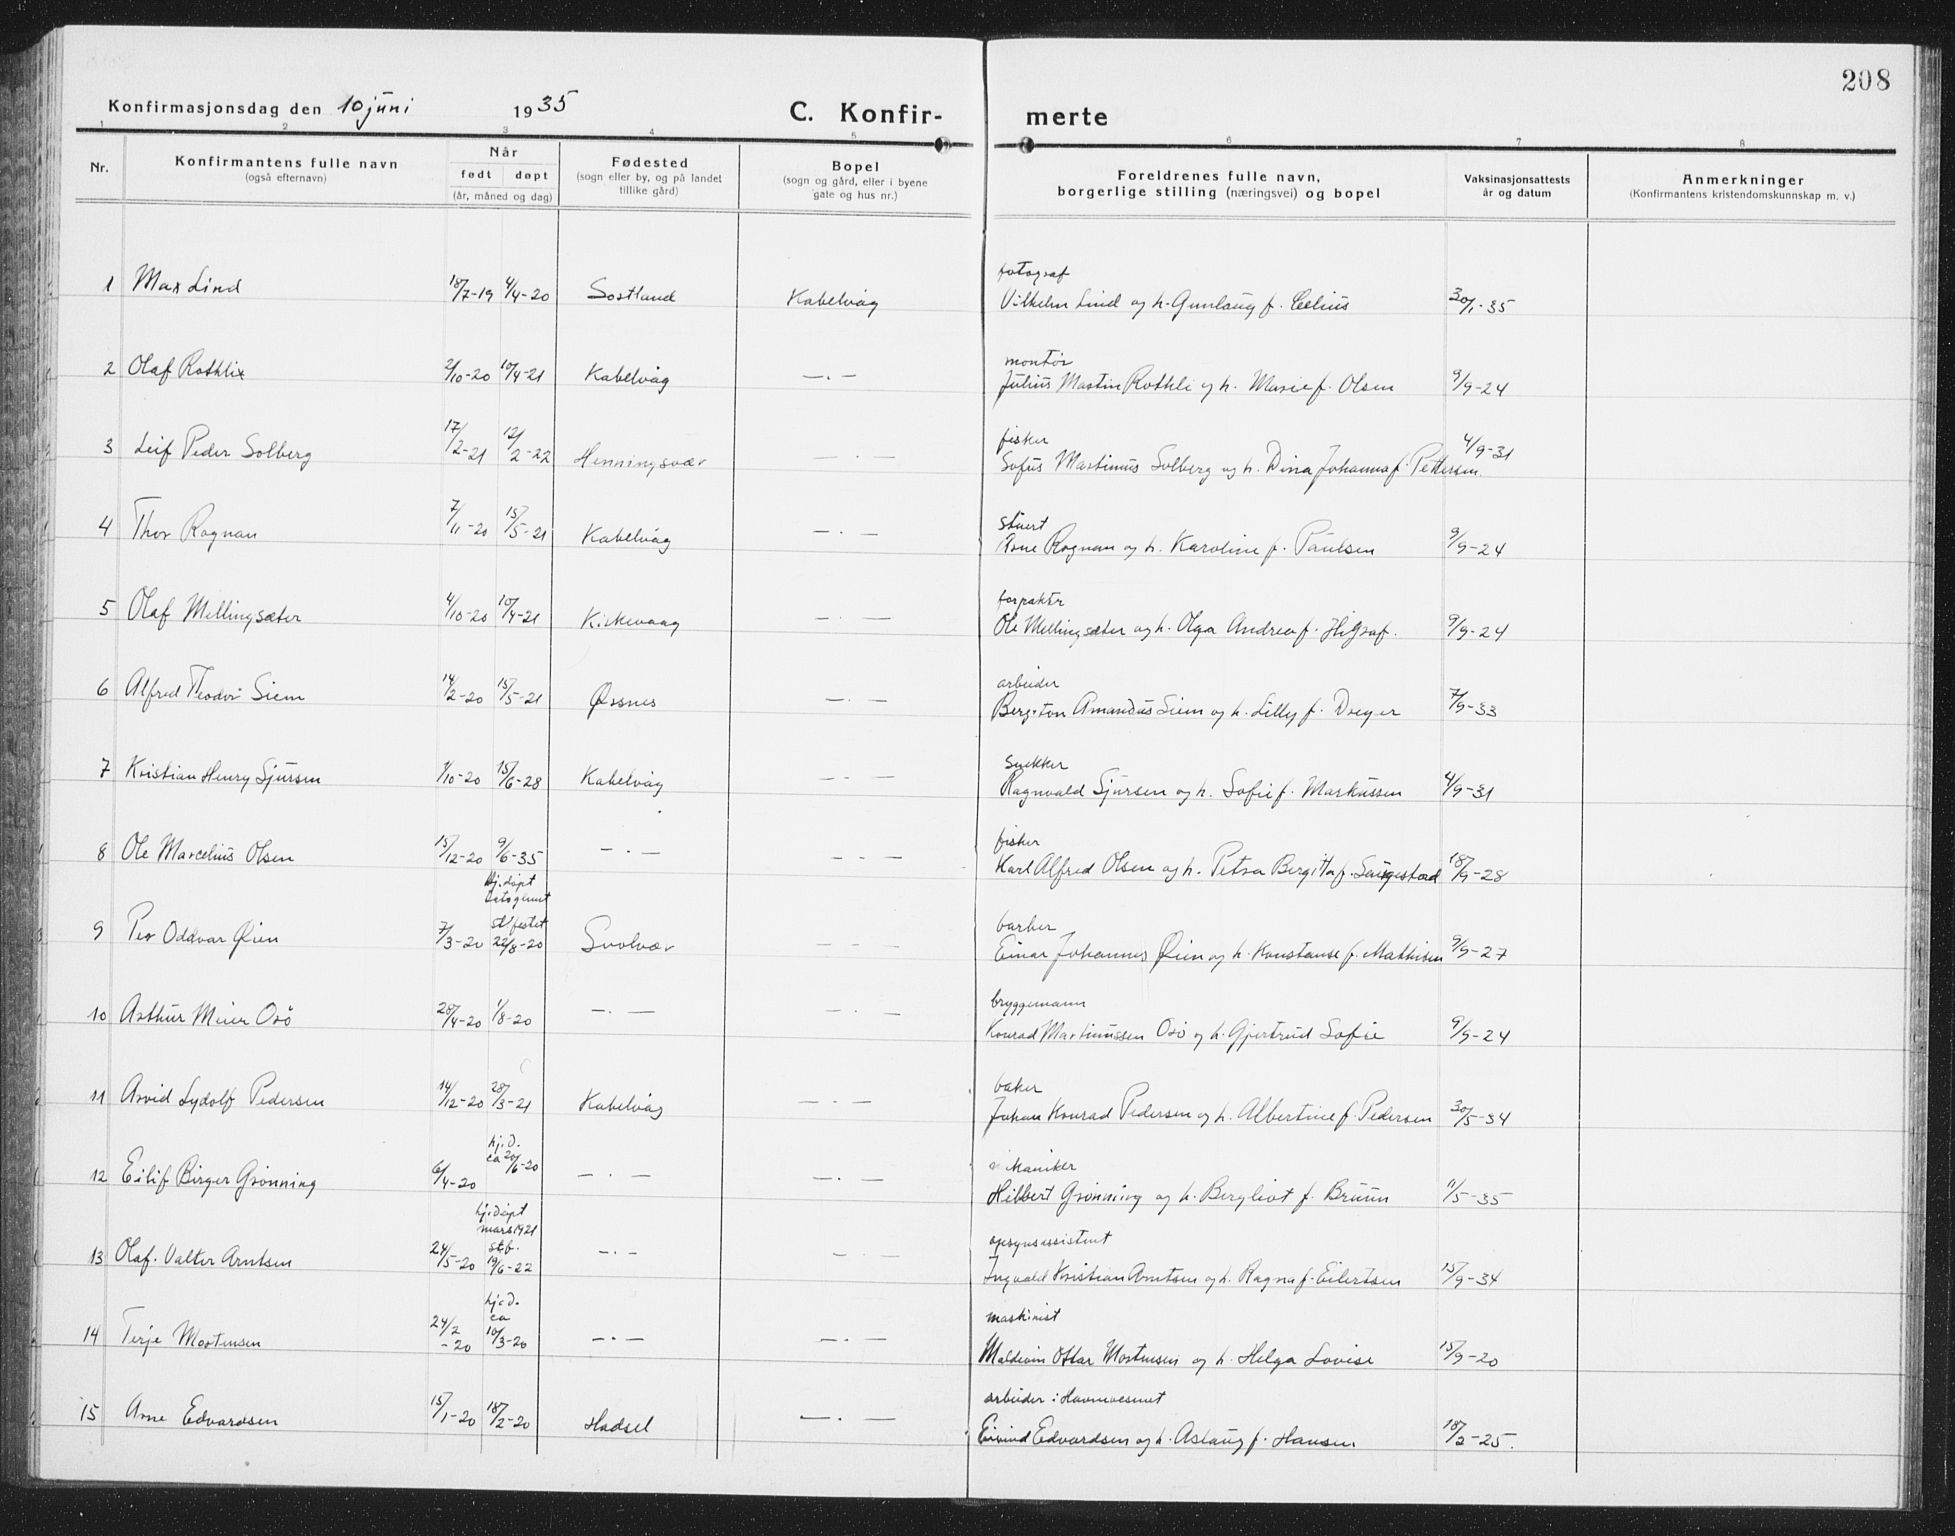 208
Konfirmasjonsdag den 10 juni 1935 C. Konfir- merte
1 2 3 4 5 6 7 8
Nr. Konfirmantens fulle navn (også efternavn) Når født døpt (år, måned og dag) Fødested (sogn eller by, og på landet tillike gård) Bopel (sogn og gård, eller i byene gate og hus nr.) Foreldrenes fulle navn, borgerlige stilling (næringsvei) og bopel Vaksinasjonsattests år og datum Anmerkninger (Konfirmantens kristendomskunnskap m. v.)
fotograf
1 Max Lind 18/7-19 4/4-20 Sortland Kabelvåg Vilhelm Lind og h. Gunlaug f. Celius 30/1-35
montør
2 Olaf Rothli 2/10-20 10/4-21 Kabelvåg —.— Julius Martin Rothli og h. Marie f. Olsen 9/9-24
fisker
3 Leif Peder Solberg 17/2-21 12/2-22 Henningsvær —.— Sofus Martinus Solberg og h. Dina Johanna f. Pettersen. 4/9-31
stuert
4 Thor Rognan 7/11-20 15/5-21 Kabelvåg —.— Arne Rognan og h. Karoline f. Paulsen 9/9-24
forpakter
5 Olaf Mellingsæter 4/10-20 10/4-21 Kirkevaag —.— Ole Mellingsæter og h. Olga Andrea f. 9/9-24
arbeider
6 Alfred Teodor Siem 14/2-20 15/5-21 Ørsnes —.— Bergeton Amandus Siem og h. Lilly f. Dreyer 7/9-33
snekker
7 Kristian Henry Sjursen 1/10-20 15/6-28 Kabelvåg —.— Ragnvald Sjursen og h. Sofie f. Markussen 4/9-31
fisker
8 Ole Marcelius Olsen 15/12-20 9/6-35 —.— —.— Karl Alfred Olsen og h. Petra Bergitta f. 18/9-28
hj. døpt
barber
9 Per Oddvar Øien 7/3-20 stfestet 22/8-20 Svolvær —.— Einar Johannes Øien og h. Konstanse f. Mathisen 9/9-27
bryggemann
10 Arthur Meier Osö 28/4-20 1/8-20 —.— —.— Konrad Martinussen Osö og h. Gjertrud Sofie 9/9-24
baker
11 Arvid Lydolf Pedersen 14/12-20 28/3-21 Kabelvåg —.— Johan Konrad Pedersen og h. Albertine f. Pedersen 30/5-34
mekaniker
12 Eilif Birger Grønning 6/4-20 hj.d. ca 20/6-20 —.— —.— Hilbert Grønning og h. Bergliot f. Bruun 11/5-35
hj.døpt mars 1921
opsynsassistent
13 Olaf Valter Arntsen 24/5-20 st.b. 19/6-22 —.— —.— Ingvald Kristian Arntsen og h. Ragna f. Eilertsen 15/9-34
maskinist
14 Terje Mortensen 24/2-20 hj.d. ca 10/3-20 —.— —.— Maldevin Ottar Mortensen og h. Helga Lovise 15/9-20
arbeider i Havnevesenet
15 Arne Edvardsen 15/1-20 18/2-20 Hadsel —.— Eivind Edvardsen og h. Aslaug f. Hansen 18/2-25.